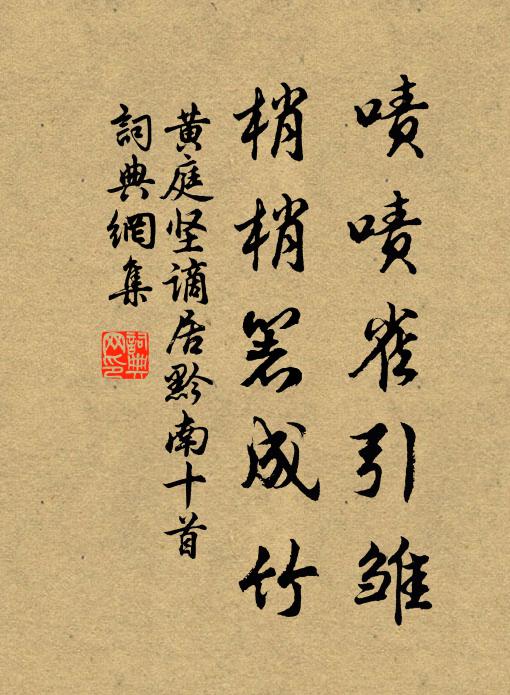 嘖嘖雀引雛
梢梢笋成竹
黄庭坚谪居黔南十首
詞典網集
詞典网印